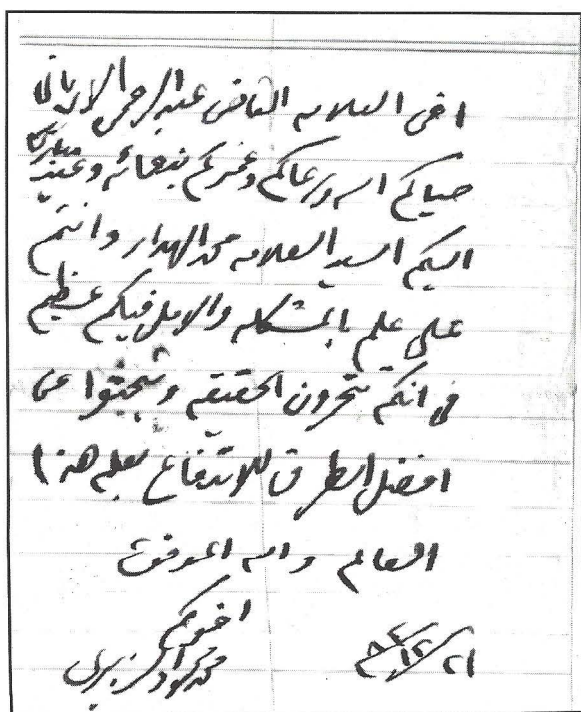 اخي العلامه القاضي عبد الرحمن الارياني
حياكم الله ورعاكم وغمركم بنعمائه وعيد مبارك
اليكم السيد العلامه محمد الهدار وانتم
على علم بالمشكله والامل فيكم عظيم
في انكم تتحرون الحقيقه وتبحثوا عن
افضل الطرق للانتفاع بعلم هذا
العالم والله الموفق
اخوكم
محمد محمود الزبيري